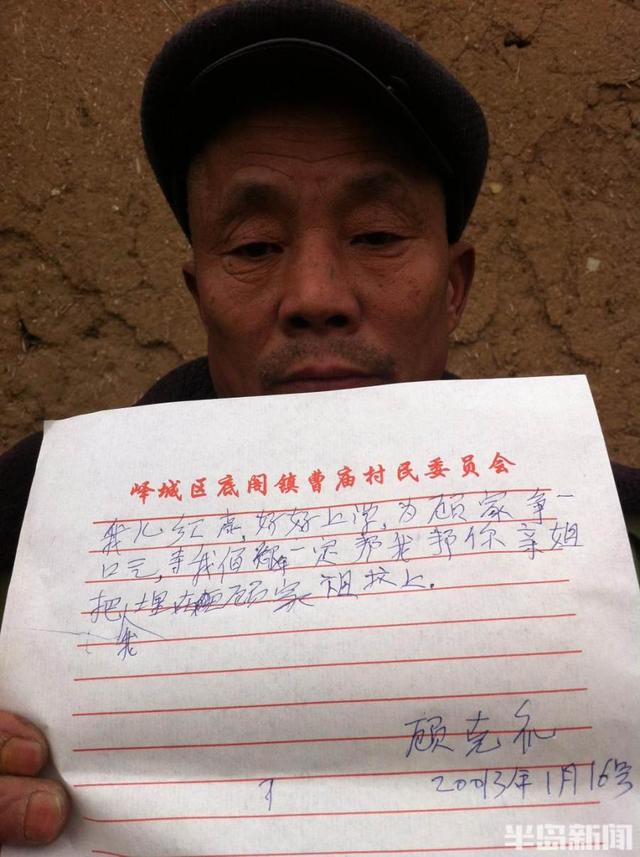 峄城区底阁镇曹庙村民委员会
我儿红 好好上学,为顾家争一
口气,等我 一定 我 你亲姐
把我埋 顾家祖坟上。
顾克礼
20013年1月16号
半岛新闻